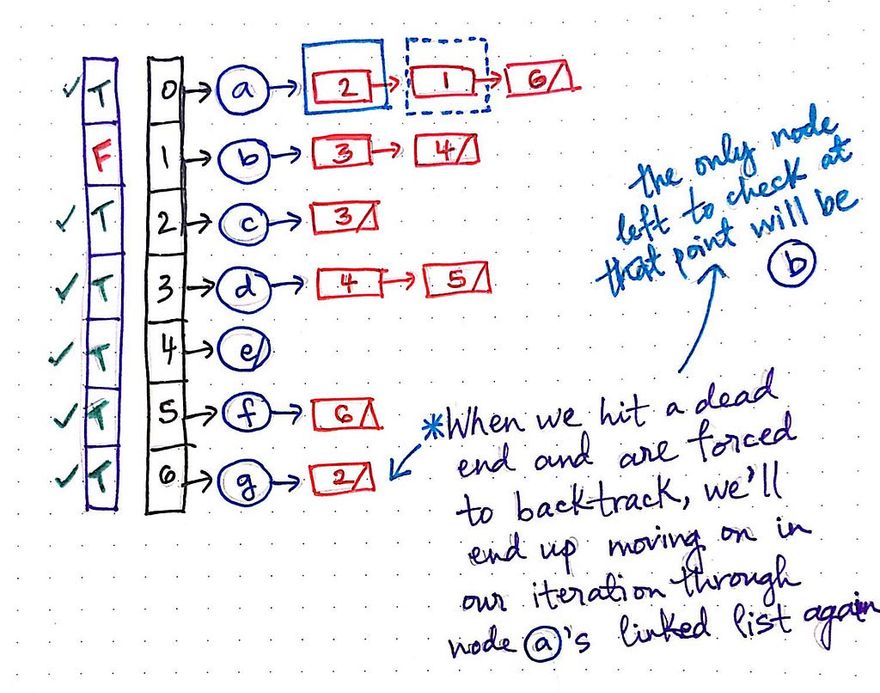 ✓ T 0 → a → 2 → 1 → 6
F 1 → b → 3 → 4
✓ T 2 → c → 3
✓ T 3 → d → 4 → 5
✓ T 4 → e
✓ T 5 → f → 6
✓ T 6 → g → 2
the only node
left to check at
that point will be
b
*When we hit a dead
end and are forced
to backtrack, we'll
end up moving on in
our iteration through
node a's linked list again